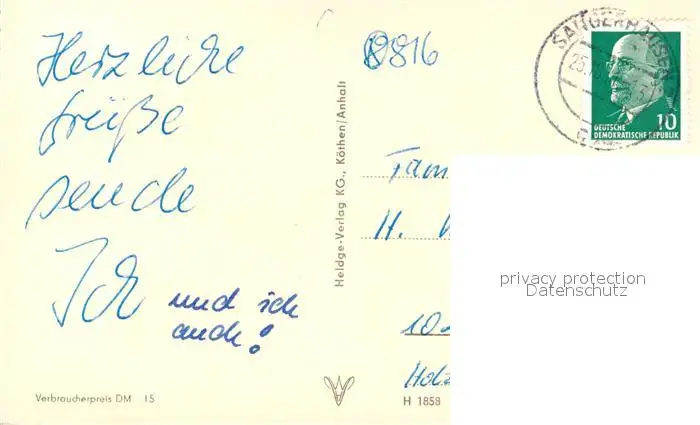 Herzliche
Grüße
sende
Ich
und ich
auch!
Verbraucherpreis DM 15
Heldge-Verlag KG., Köthen/Anhalt
H 1858
8816
SANGERHAUSEN
DEUTSCHE 10
DEMOKRATISCHE REPUBLIK
H.
privacy protection
Datenschutz